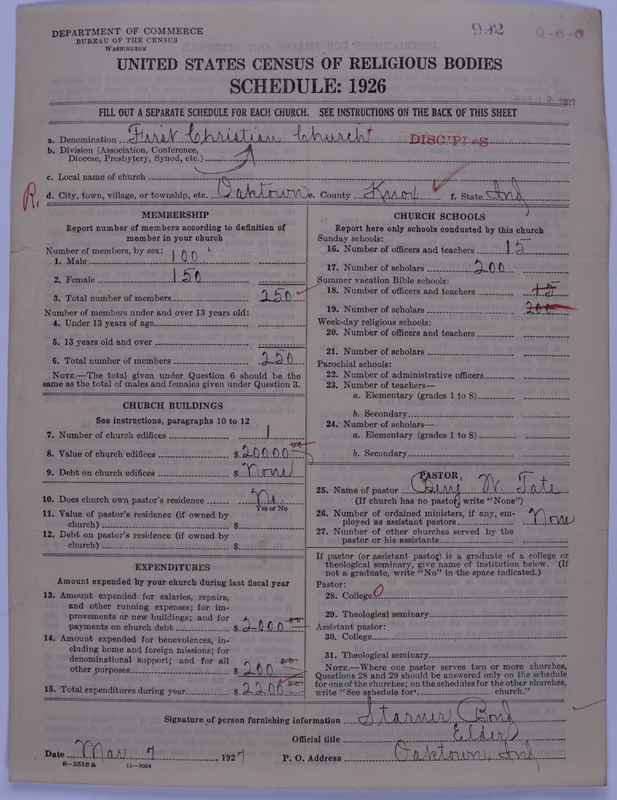 DEPARTMENT OF COMMERCE
BUREAU OF THE CENSUS
WASHINGTON
992
0-6-0
UNITED STATES CENSUS OF RELIGIOUS BODIES
SCHEDULE: 1926
FILL OUT A SEPARATE SCHEDULE FOR EACH CHURCH. SEE INSTRUCTIONS ON THE BACK OF THIS SHEET
a. Denomination First Christian Church DISCIPLES
b. Division (Association, Conference,
Diocese, Presbytery, Synod, etc.)
c. Local name of church
R. d. City, town, village, or township, etc. Oaktown e. County Knox f. State Ind
MEMBERSHIP
Report number of members according to definition of
member in your church
Number of members, by sex:
1. Male 100
2. Female 150
3. Total number of members 250
Number of members under and over 13 years old:
4. Under 13 years of age
5. 13 years old and over
6. Total number of members 250
NOTE.—The total given under Question 6 should be the
same as the total of males and females given under Question 3.
CHURCH BUILDINGS
See instructions, paragraphs 10 to 12
7. Number of church edifices 1
8. Value of church edifices $ 20000 00
9. Debt on church edifices $ None
10. Does church own pastor's residence No.
Yes or No
11. Value of pastor's residence (if owned by
church) $
12. Debt on pastor's residence (if owned by
church) $
EXPENDITURES
Amount expended by your church during last fiscal year
13. Amount expended for salaries, repairs,
and other running expenses; for im-
provements or new buildings; and for
payments on church debt $ 2000 00
14. Amount expended for benevolences, in-
cluding home and foreign missions; for
denominational support; and for all
other purposes $ 200 00
15. Total expenditures during year $ 2200 00
CHURCH SCHOOLS
Report here only schools conducted by this church
Sunday schools:
16. Number of officers and teachers 15
17. Number of scholars 200
Summer vacation Bible schools:
18. Number of officers and teachers 15
19. Number of scholars 200
Week-day religious schools:
20. Number of officers and teachers
21. Number of scholars
Parochial schools:
22. Number of administrative officers
23. Number of teachers—
a. Elementary (grades 1 to 8)
b. Secondary
24. Number of scholars—
a. Elementary (grades 1 to 8)
b. Secondary
PASTOR
25. Name of pastor Benj W. Tate
(If church has no pastor, write "None")
26. Number of ordained ministers, if any, em-
ployed as assistant pastors None
27. Number of other churches served by the
pastor or his assistants
If pastor (or assistant pastor) is a graduate of a college or
theological seminary, give name of institution below. (If
not a graduate, write "No" in the space indicated.)
Pastor:
28. College O
29. Theological seminary
Assistant pastor:
30. College
31. Theological seminary
NOTE.—Where one pastor serves two or more churches,
Questions 28 and 29 should be answered only on the schedule
for one of the churches; on the schedules for the other churches,
write "See schedule for church."
Signature of person furnishing information Starner Bond
Official title Elder
Date Mar 7, 1927 P. O. Address Oaktown, Ind
6-5518 a 11-9054